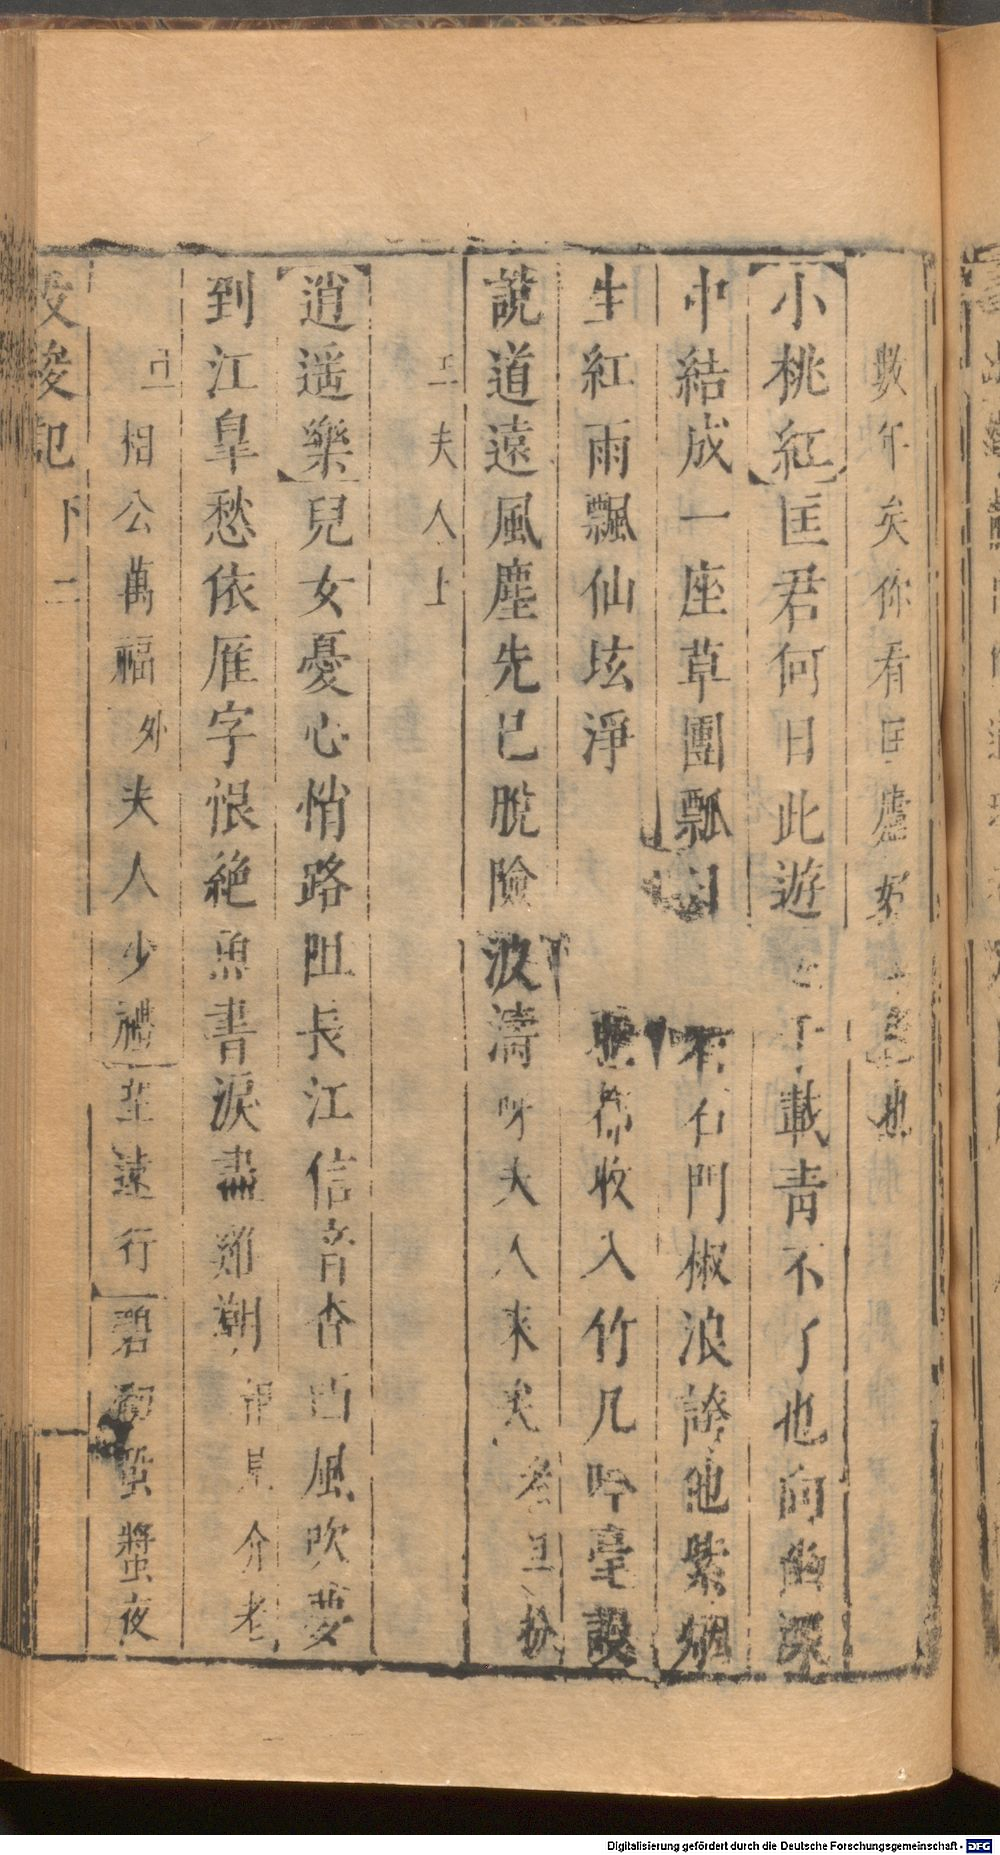 數年矣你看匡廬好　也
小桃紅匡君何日此遊　千載青不了也向幽深
中結成一座草團瓢　有石門椒浪誇他紫烟
生紅雨飄仙垓淨　收入竹几吟毫設
說道遠風塵先已脫險波濤呀夫人來矣老旦扮
王夫人上
逍遥樂兒女憂心悄路阻長江信音杳西風吹夢
到江臯愁依雁字恨絶魚書淚盡鄉朝相見介老
旦相公萬福外夫人少禮至遠行碧　蛩螿夜
投梭記　下　二
Digitalisierung gefördert durch die Deutsche Forschungsgemeinschaft - DFG